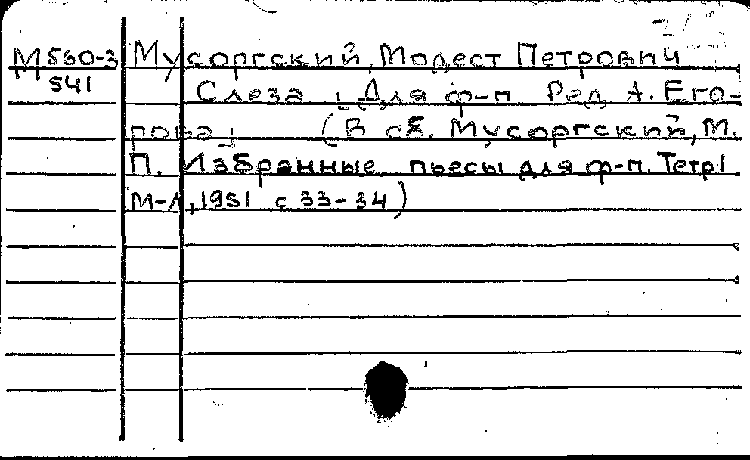 М 560-3 Мусоргский, Модест Петрович
541 Слеза [Для ф-п. Ред. А. Его-
рова] (В сб. Мусоргский, М.
П. Избранные пьесы для ф-п. Тетр 1
М-Л, 1951 с 33-34)